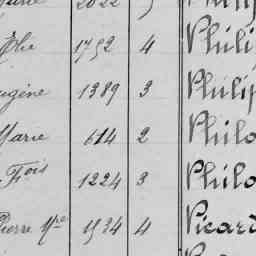 2022
Elie 1752 4 Phili
ugène 1389 3 Philip
Marie 614 2 Philo
Fois 1224 3 Philo
Pierre Mie 1534 4 Picard